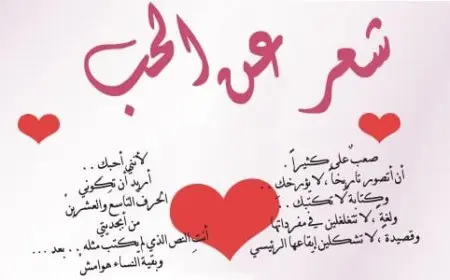 شعر عن الحب
صعبٌ علىَّ كثيراً.
أن أتصور تاريخاً، لا يؤرخك . .
وكتابة لا تكتبك . .
ولغةٍ، لا تتغلغلين في مفرداتها
وقصيدة، لا تشكلين إيقاعها الرئيسي
لأنني أحبك . .
أريد أن تكوني
الحرف التاسع والعشرين
من أبجديتي
أنتِ النص الذي لم يكتب مثله . . بعد . . .
وبقية النساء هوامش